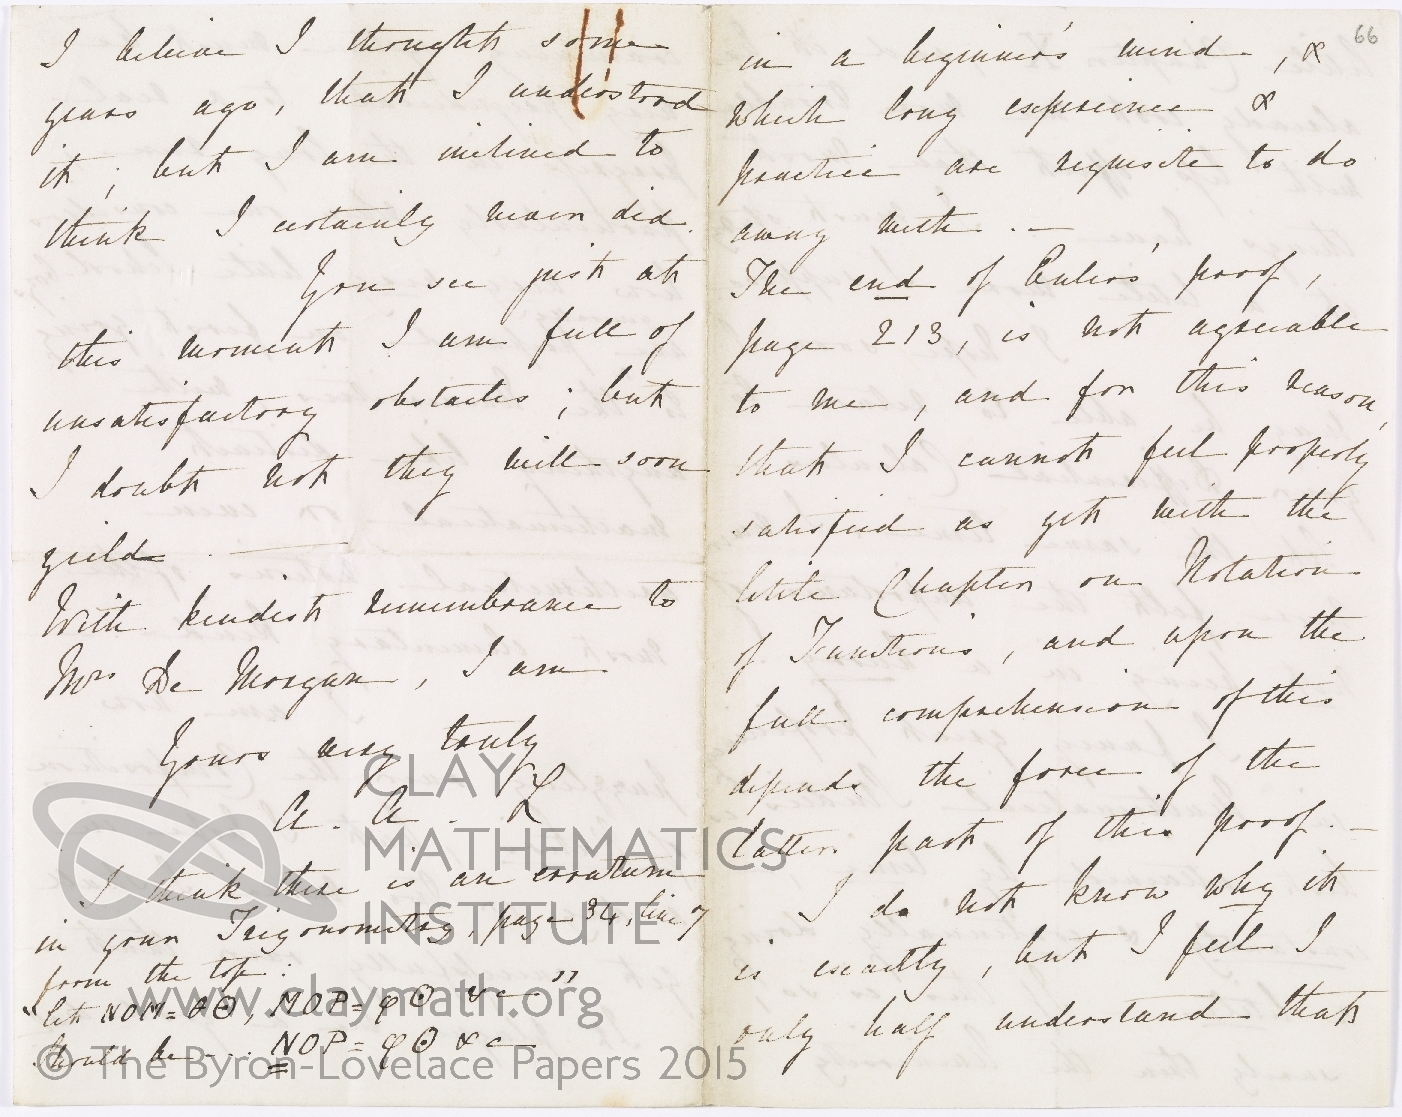 I believe I thought some
years ago, that I understood
it; but I am inclined to
think I certainly never did.
You see just at
this moment I am full of
unsatisfactory obstacles; but
I doubt not they will soon
yield. —
With kindest remembrance to
Mrs De Morgan, I am
Yours very truly
A. A. L
I think there is an erratum
in your Trigonometry, page 34, line 7
from the top:
"let NOM = θ, MOP = φ &c"
should be NOP = φ &c
66
in a beginner's mind, &
which long experience &
practice are requisite to do
away with. —
The end of Euler's proof,
page 213, is not agreeable
to me, and for this reason,
that I cannot feel properly
satisfied as yet with the
little Chapter on Notation
of Functions, and upon the
full comprehension of this
depends the force of the
latter part of this proof. —
I do not know why it
is exactly, but I feel I
only half understand that
CLAY
MATHEMATICS
INSTITUTE
www.claymath.org
© The Byron-Lovelace Papers 2015